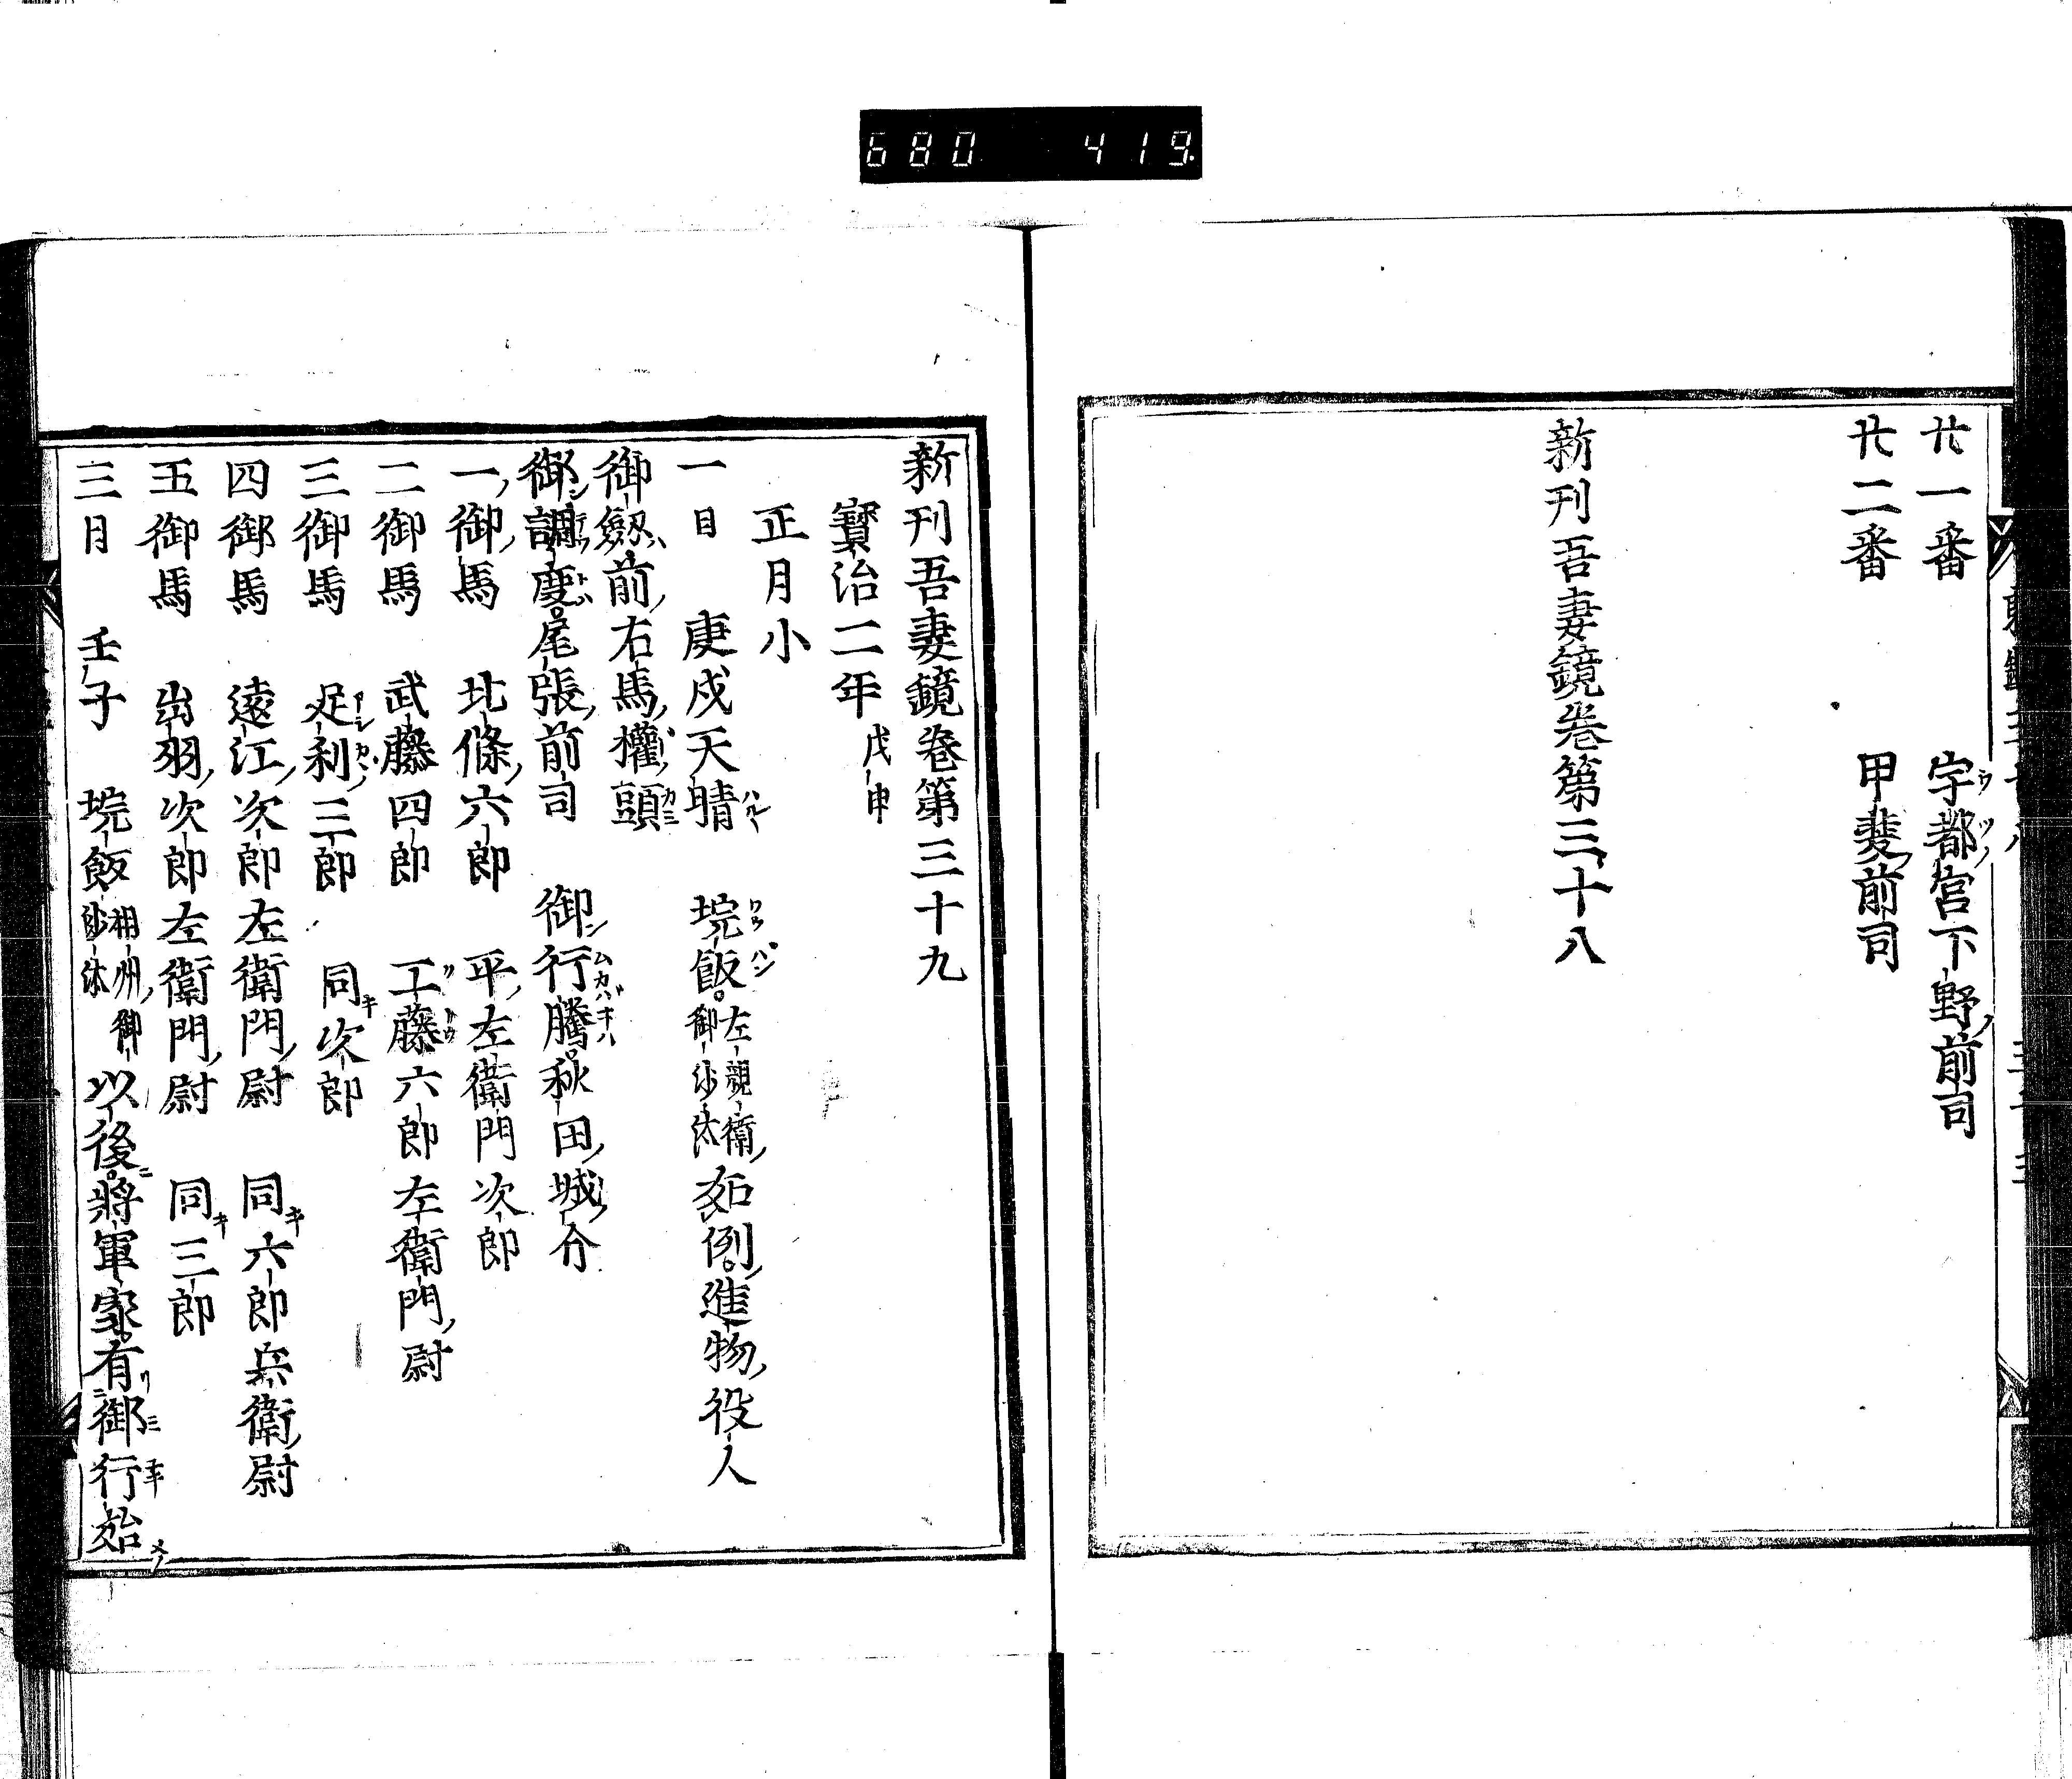 680 419.
廿一番 宇都宮下野前司
廿二番 甲斐前司
新刊吾妻鏡巻第三十八
新刊吾妻鏡巻第三十九
寳治二年戊申
正月小
一日 庚戌天晴 垸飯左親衛御沙汰如例進物役人
御劔前右馬權頭
御調度尾張前司 御行騰秋田城介
一御馬 北條六郎 平左衛門次郎
二御馬 武藤四郎 工藤六郎左衛門尉
三御馬 足利三郎 同次郎
四御馬 遠江次郎左衛門尉 同六郎兵衛尉
五御馬 出羽次郎左衛門尉 同三郎
三日 壬子 垸飯相州御沙汰以後將軍家有御行始